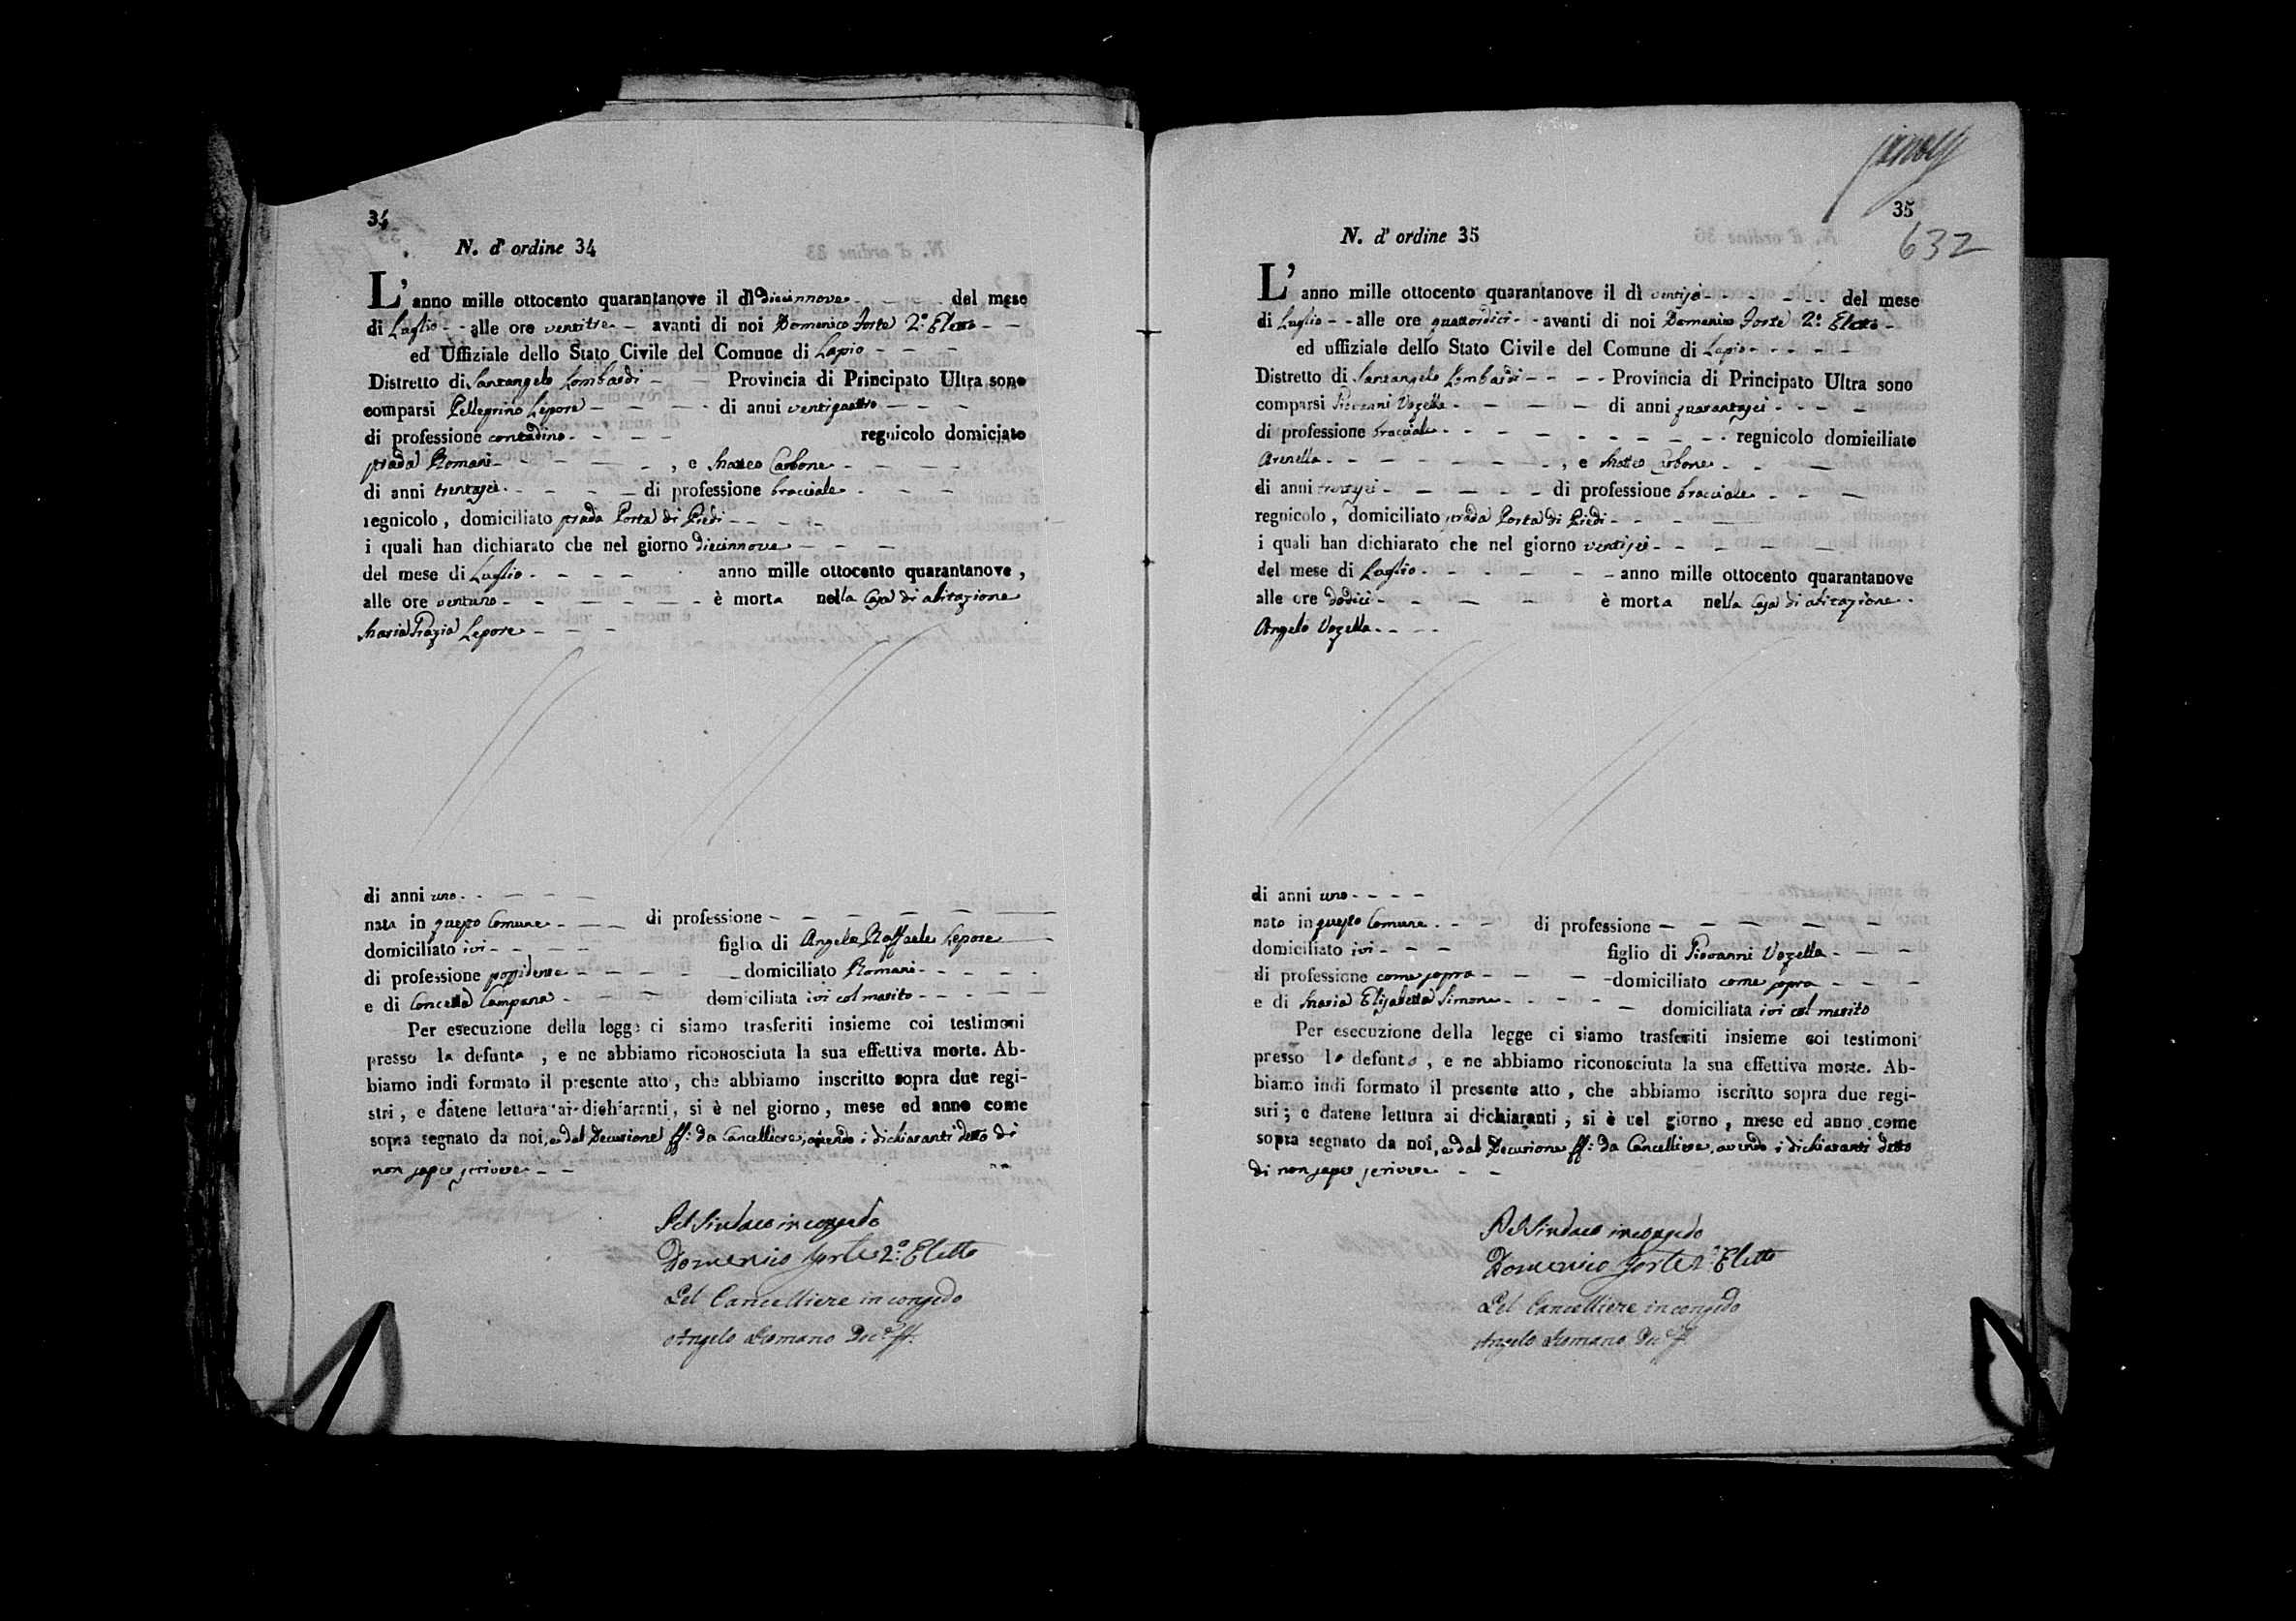 34
N. d' ordine 34
L'anno mille ottocento quarantanove il dì diecinnove - - - - del mese
di Luglio - - alle ore ventitre - - avanti di noi Domenico Forte 2.º Eletto - -
ed Uffiziale dello Stato Civile del Comune di Lapio - - -
Distretto di Santangelo Lombardi - - Provincia di Principato Ultra sono
comparsi Pellegrino Lepore - - - - di anni ventiquattro - - -
di professione contadino - - - - regnicolo domiciato
strada Romani - - - - - - , e Matteo Carbone - - - -
di anni trentasei - - - - di professione bracciale - - -
regnicolo, domiciliato strada Porta di Piedi - - - -
i quali han dichiarato che nel giorno diecinnove - - -
del mese di Luglio - - - - anno mille ottocento quarantanove,
alle ore ventuno - - - - - - è morta nella Casa di abitazione
Maria Grazia Lepore - - -
di anni uno - - - - -
nata in questo Comune - - - di professione - - - - - -
domiciliato ivi - - - - figlia di Angelo Raffaele Lepore
di professione possidente - - - - domiciliato Romani - - - - -
e di Concetta Campana - - - domiciliata ivi col marito - - - - -
Per esecuzione della legge ci siamo trasferiti insieme coi testimoni
presso la defunta , e ne abbiamo riconosciuta la sua effettiva morte. Ab-
biamo indi formato il presente atto, che abbiamo inscritto sopra due regi-
stri, e datene lettura ai dichiaranti, si è nel giorno, mese ed anno come
sopra segnato da noi, e dal Decurione ff: da Cancelliere, avendo i dichiaranti detto di
non saper scrivere - -
Pel Sindaco in congedo
Domenico Forte 2.º Eletto
Pel Cancelliere in congedo
Angelo Romano Dec.e ff.
35
632
N. d' ordine 35
L'anno mille ottocento quarantanove il dì ventisei - - - - - del mese
di Luglio - - alle ore quattordici - - avanti di noi Domenico Forte 2.º Eletto -
ed uffiziale dello Stato Civile del Comune di Lapio - - - - -
Distretto di Santangelo Lombardi - - - - Provincia di Principato Ultra sono
comparsi Giovanni Vozella - - - - - di anni quarantasei - - - -
di professione bracciale - - - - - - - - - - regnicolo domiciliato
Arenella - - - - - - - - , e Matteo Carbone - - -
di anni trentasei - - - - - - di professione bracciale - - -
regnicolo, domiciliato strada Porta di Piedi - - - -
i quali han dichiarato che nel giorno ventisei - - - - - -
del mese di Luglio - - - - - - - anno mille ottocento quarantanove
alle ore dodici - - - - - è morta nella Casa di abitazione -
Angelo Vozella - - - -
di anni uno - - - -
nato in questo Comune - - - di professione - - - - - -
domiciliato ivi - - - figlio di Giovanni Vozella - - -
di professione come sopra - - - - domiciliato come sopra - - -
e di Maria Elisabetta Simone - - - - - domiciliata ivi col marito
Per esecuzione della legge ci siamo trasferiti insieme coi testimoni
presso lo defunto , e ne abbiamo riconosciuta la sua effettiva morte. Ab-
biamo indi formato il presente atto, che abbiamo iscritto sopra due regi-
stri; e datene lettura ai dichiaranti, si è nel giorno, mese ed anno come
sopra segnato da noi, e dal Decurione ff: da Cancelliere, avendo i dichiaranti detto
di non saper scrivere - -
Pel Sindaco in congedo
Domenico Forte 2.º Eletto
Pel Cancelliere in congedo
Angelo Romano Dec.e ff.